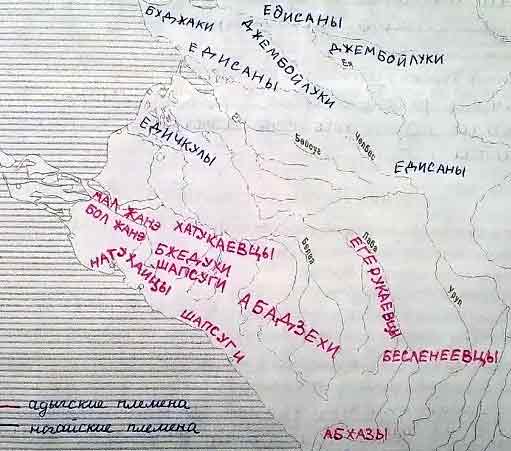 БУДЖАКИ
ЕДИСАНЫ
ДЖЕМБОЙЛУКИ
ДЖЕМБОЙЛУКИ
Ея
ЕДИСАНЫ
ЕДИЧКУЛЫ
Бейсуг
Челбас
ЕДИСАНЫ
МАЛ ЖАНЭ
ХАТУКАЕВЦЫ
БОЛ ЖАНЭ
БЖЕДУКИ
НАТУХАЙЦЫ
ШАПСУГИ
АБАДЗЕХИ
ШАПСУГИ
Белая
Лаба
ЕГЕРУКАЕВЦЫ
Уруп
БЕСЛЕНЕЕВЦЫ
АБХАЗЫ
адыгские племена
ногайские племена